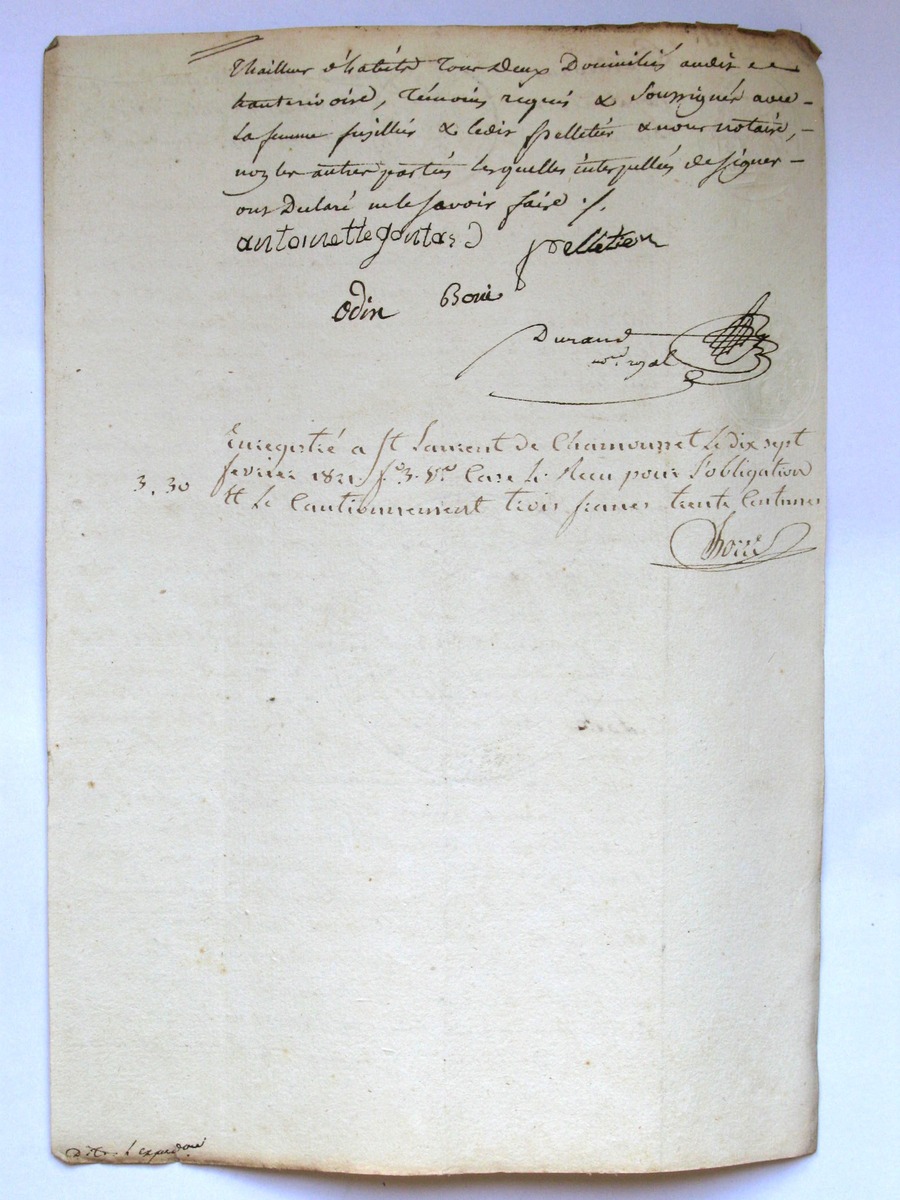 thailleur d'habits tous deux Domiciliés audit
hauterivoire, témoins requis & soussignés avec
La femme fuzilliés & ledit pelletiér & nous notaire,
non les autres partiés lesquelles interpellées de signer
ont Declaré ne le savoir faire ./.
antoinette gontard pelletier
odin Boui
Durand
nore royal
Enregistré a St Laurent de Chamousset Le dix sept
fevrier 1821. fo 3. Vo Case 4. Recu pour l'obligation
3,30
et le Cautionnement trois francs trente Centimes